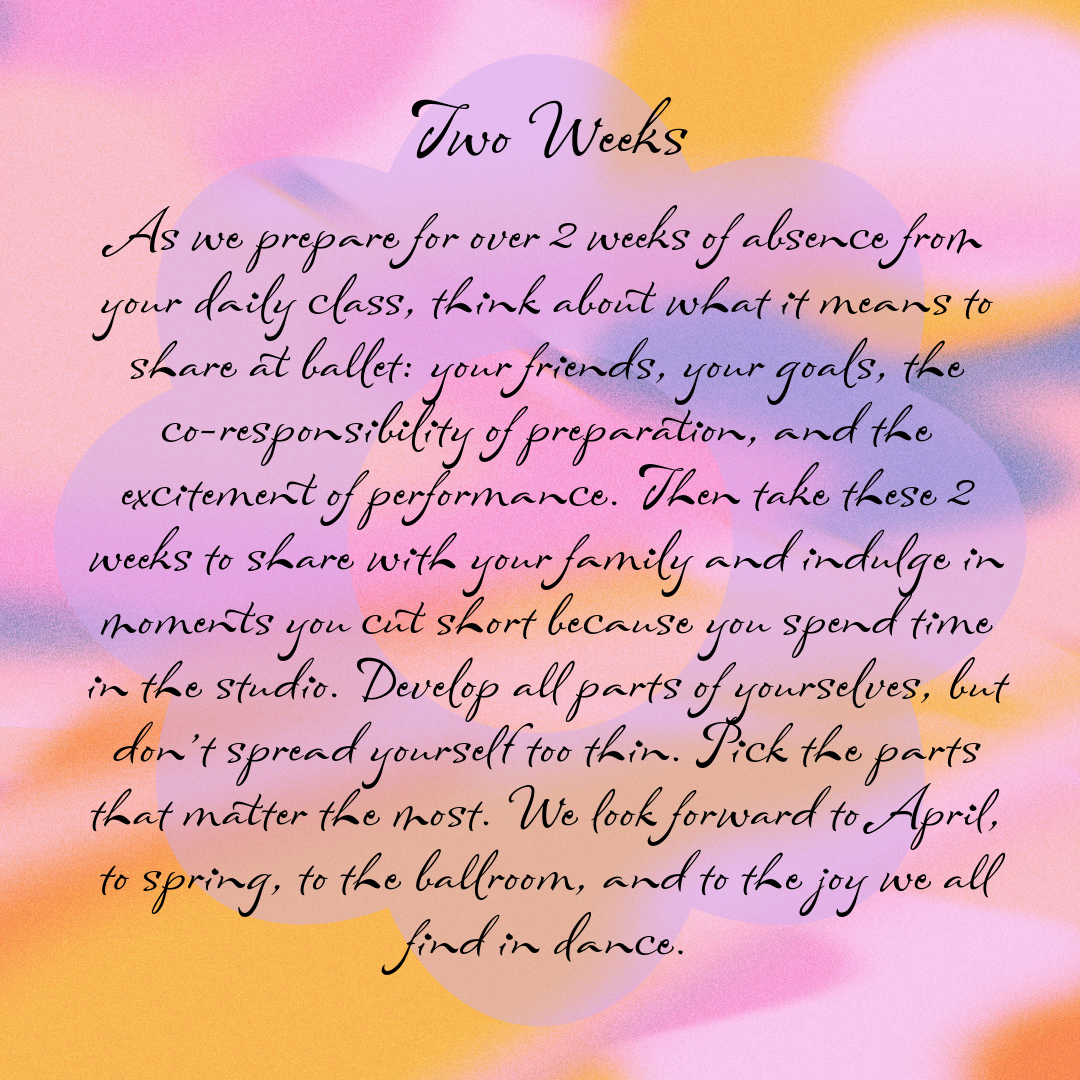 Two Weeks
As we prepare for over 2 weeks of absence from
your daily class, think about what it means to
share at ballet: your friends, your goals, the
co-responsibility of preparation, and the
excitement of performance. Then take these 2
weeks to share with your family and indulge in
moments you cut short because you spend time
in the studio. Develop all parts of yourselves, but
don't spread yourself too thin. Pick the parts
that matter the most. We look forward to April,
to spring, to the ballroom, and to the joy we all
find in dance.